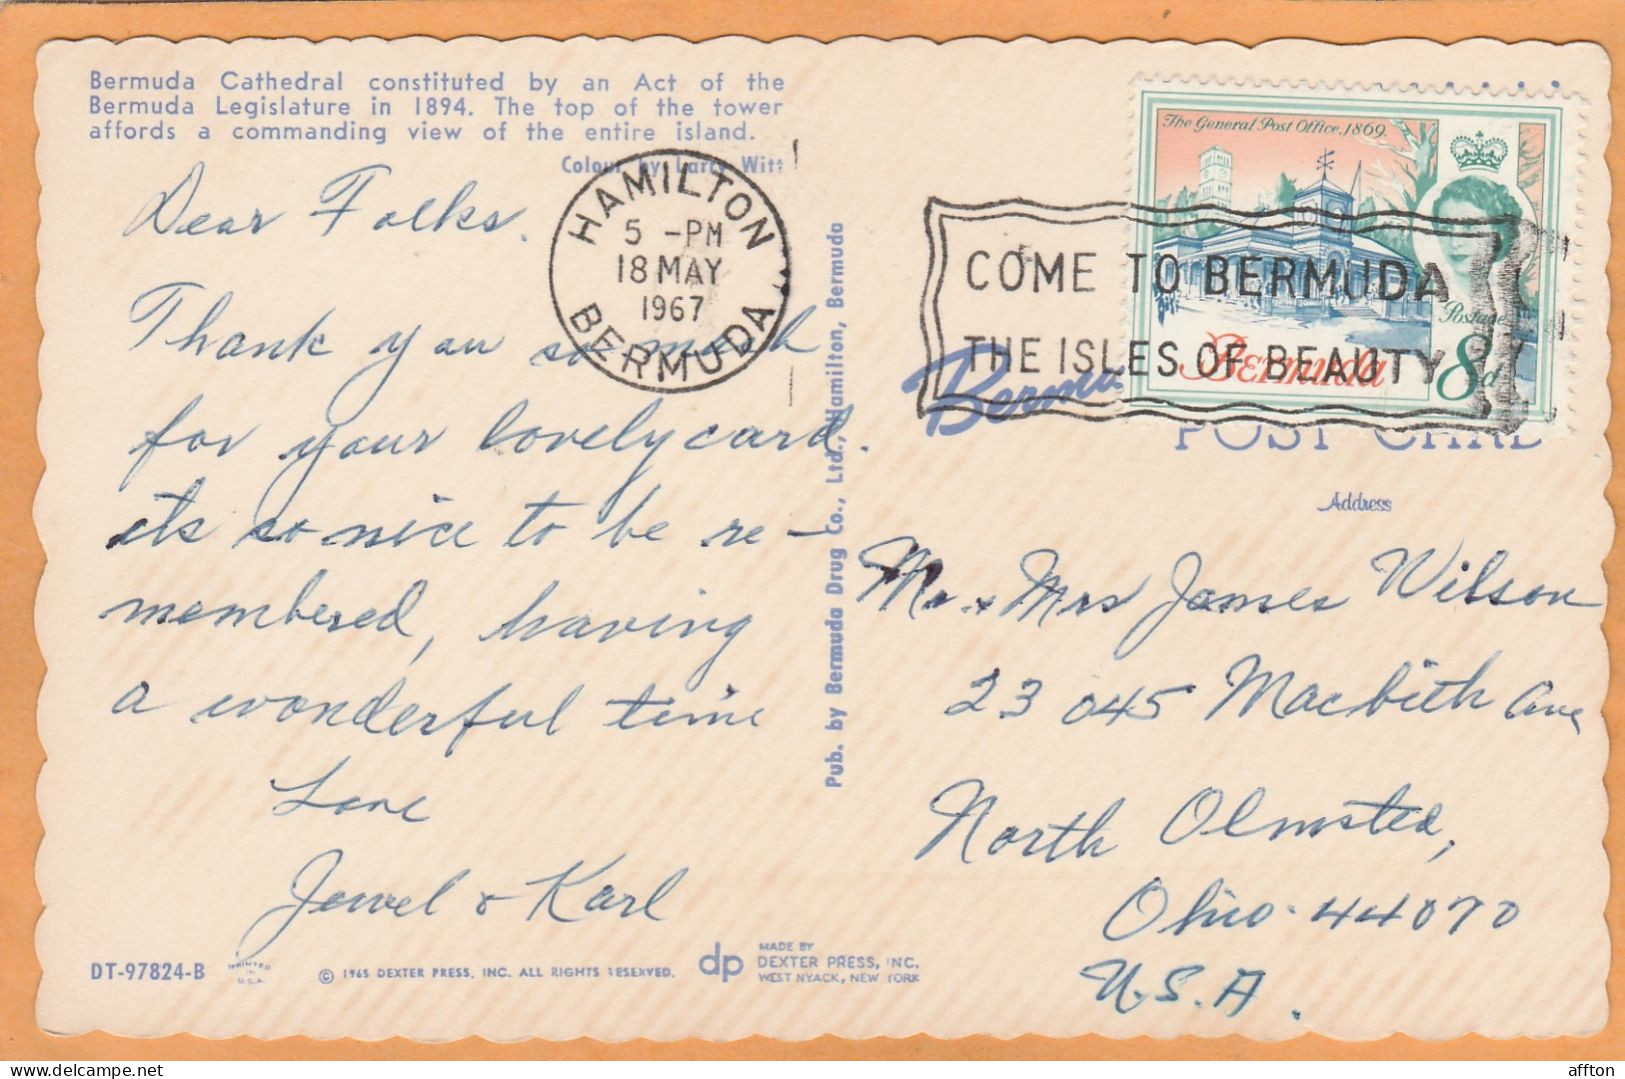 Bermuda Cathedral constituted by an Act of the
Bermuda Legislature in 1894. The top of the tower
affords a commanding view of the entire island.
Colour by Larry Witt
Dear Folks.
Thank you so much
for your lovely card.
its so nice to be re-
membered, having
a wonderful time
Love
Jewel & Karl
DT-97824-B
PRINTED
IN
U.S.A.
© 1965 DEXTER PRESS, INC. ALL RIGHTS RESERVED.
dp
MADE BY
DEXTER PRESS, INC.
WEST NYACK, NEW YORK
Pub. by Bermuda Drug Co., Ltd., Hamilton, Bermuda
HAMILTON
5 -PM
18 MAY
1967
BERMUDA
COME TO BERMUDA
THE ISLES OF BEAUTY
The General Post Office, 1869.
Postage
Bermuda
8d
Bermu
POST CARD
Address
Mr. & Mrs James Wilson
23 045 Macbeth Ave
North Olmsted,
Ohio. 44070
U.S.A.
affton